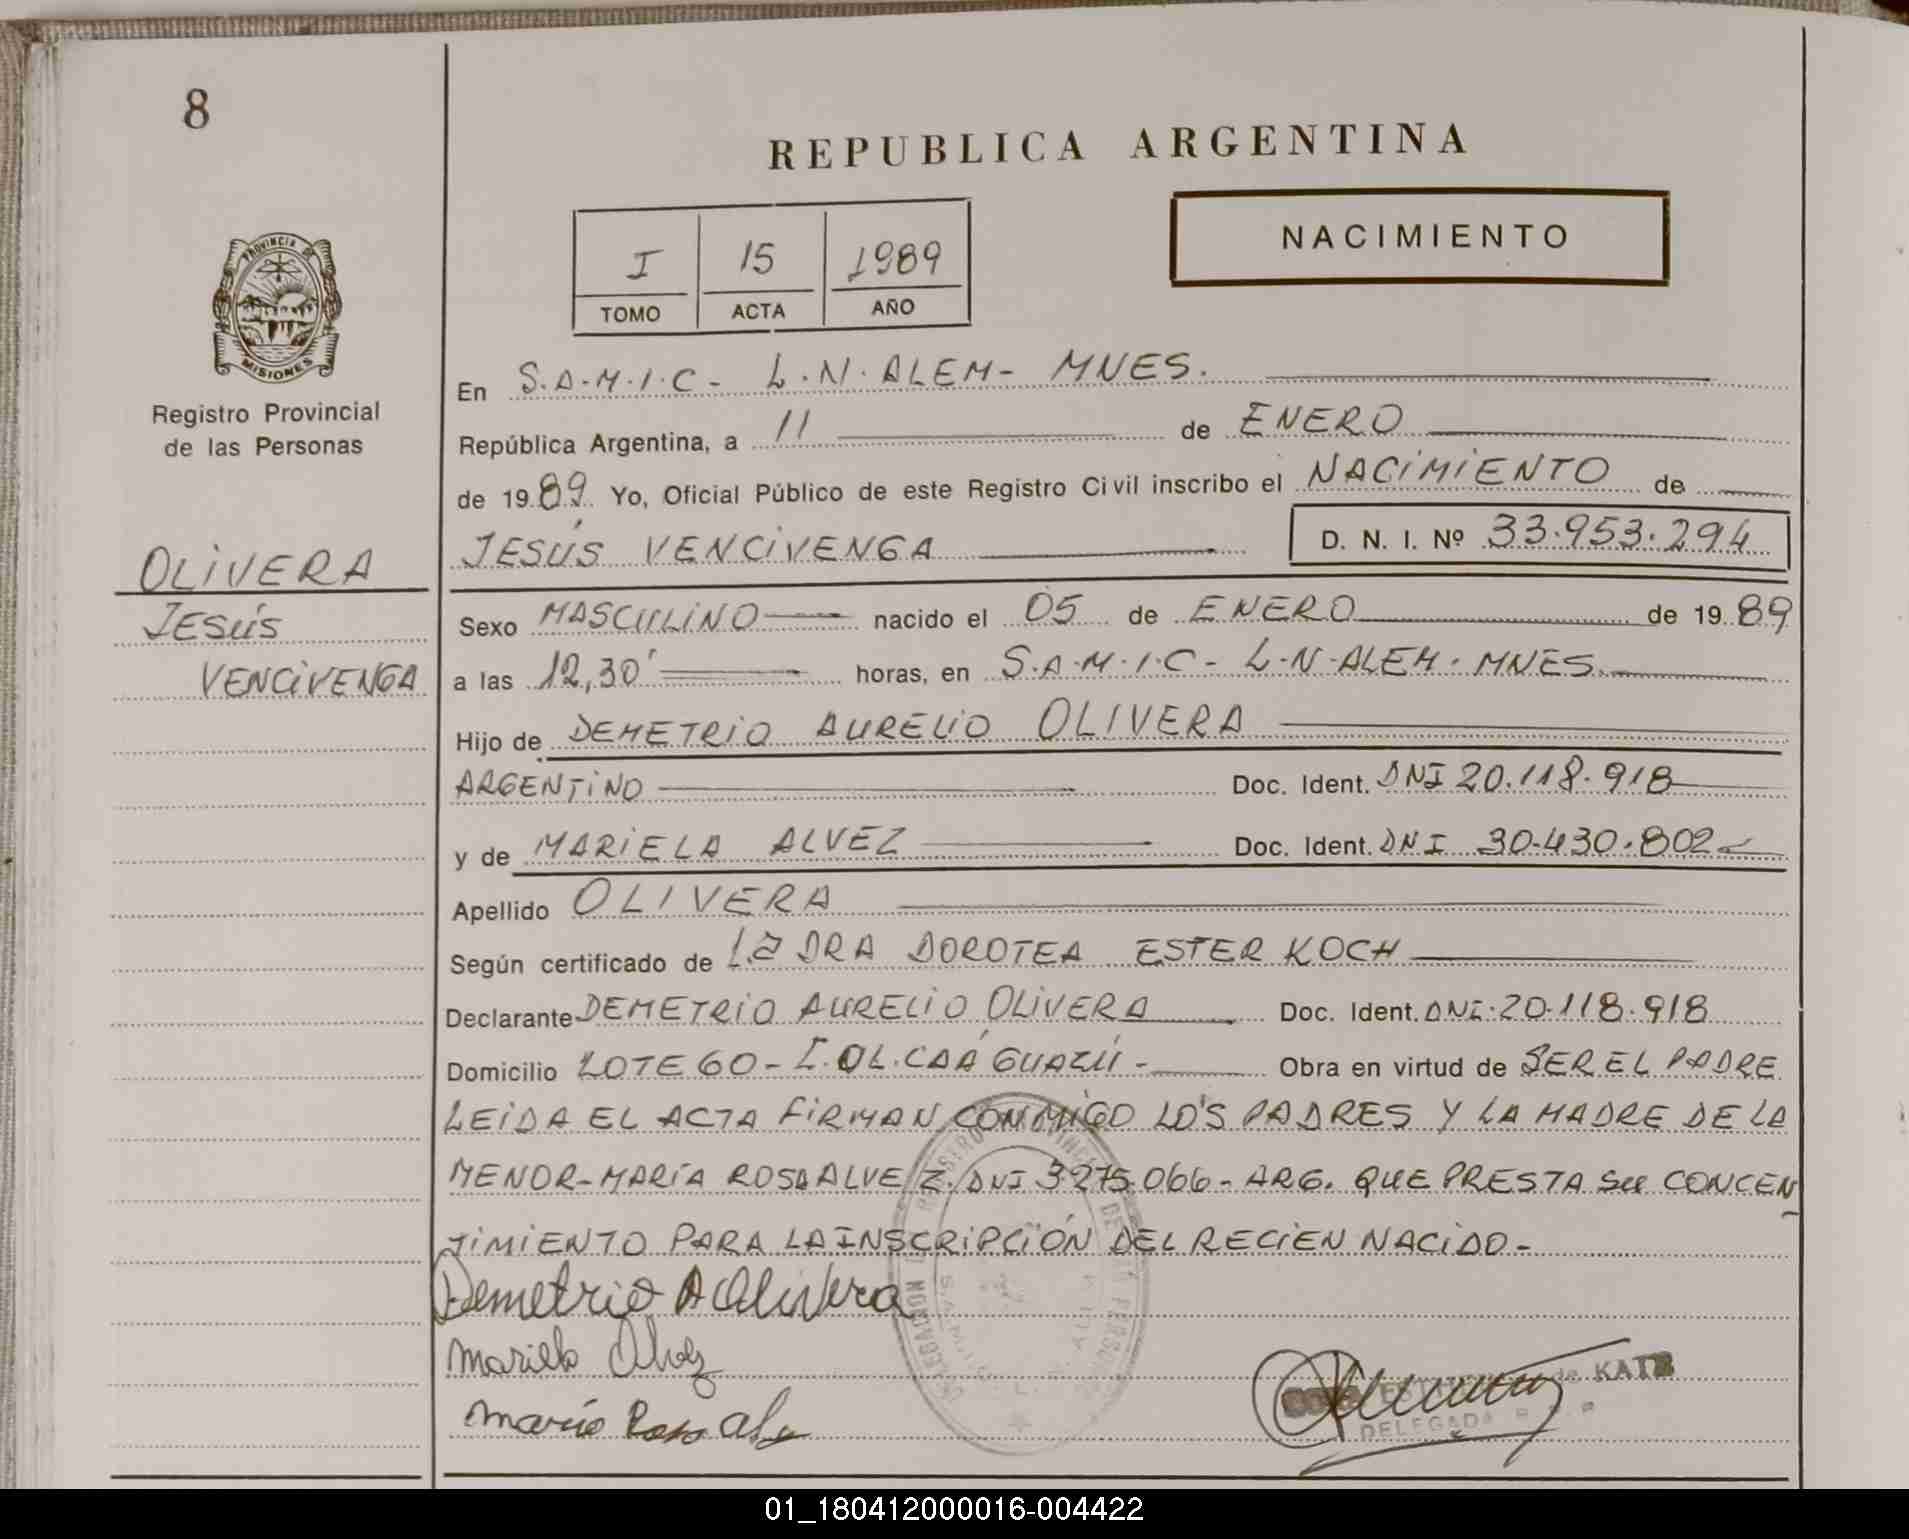 8
REPUBLICA ARGENTINA
NACIMIENTO
I 15 1989
TOMO ACTA AÑO
PROVINCIA DE
MISIONES
Registro Provincial
de las Personas
En S.A.M.I.C - L.N.ALEM - MNES.
República Argentina, a 11 de ENERO
de 1989 Yo, Oficial Público de este Registro Civil inscribo el NACIMIENTO de
JESÚS VENCIVENGA D. N. I. Nº 33.953.294
OLIVERA
JESÚS
VENCIVENGA
Sexo MASCULINO nacido el 05 de ENERO de 1989
a las 12,30' horas, en S.A.M.I.C - L.N.ALEM. MNES.
Hijo de DEMETRIO AURELIO OLIVERA
ARGENTINO Doc. Ident. DNI 20.118.918
y de MARIELA ALVEZ Doc. Ident. DNI 30.430.802
Apellido OLIVERA
Según certificado de La DRA DOROTEA ESTER KOCH
Declarante DEMETRIO AURELIO OLIVERA Doc. Ident. DNI.20.118.918
Domicilio LOTE 60 - CAÁ GUAZÚ - Obra en virtud de SER EL PADRE
LEIDA EL ACTA FIRMAN CONMIGO LOS PADRES Y LA MADRE DE LA
MENOR-MARÍA ROSA ALVEZ. DNI 3275.066 - ARG. QUE PRESTA SU CONCEN
TIMIENTO PARA LA INSCRIPCIÓN DEL RECIEN NACIDO -
Demetrio A Olivera
Mariela Alvez
María Rosa
de KATZ
DELEGADA
01_180412000016-004422